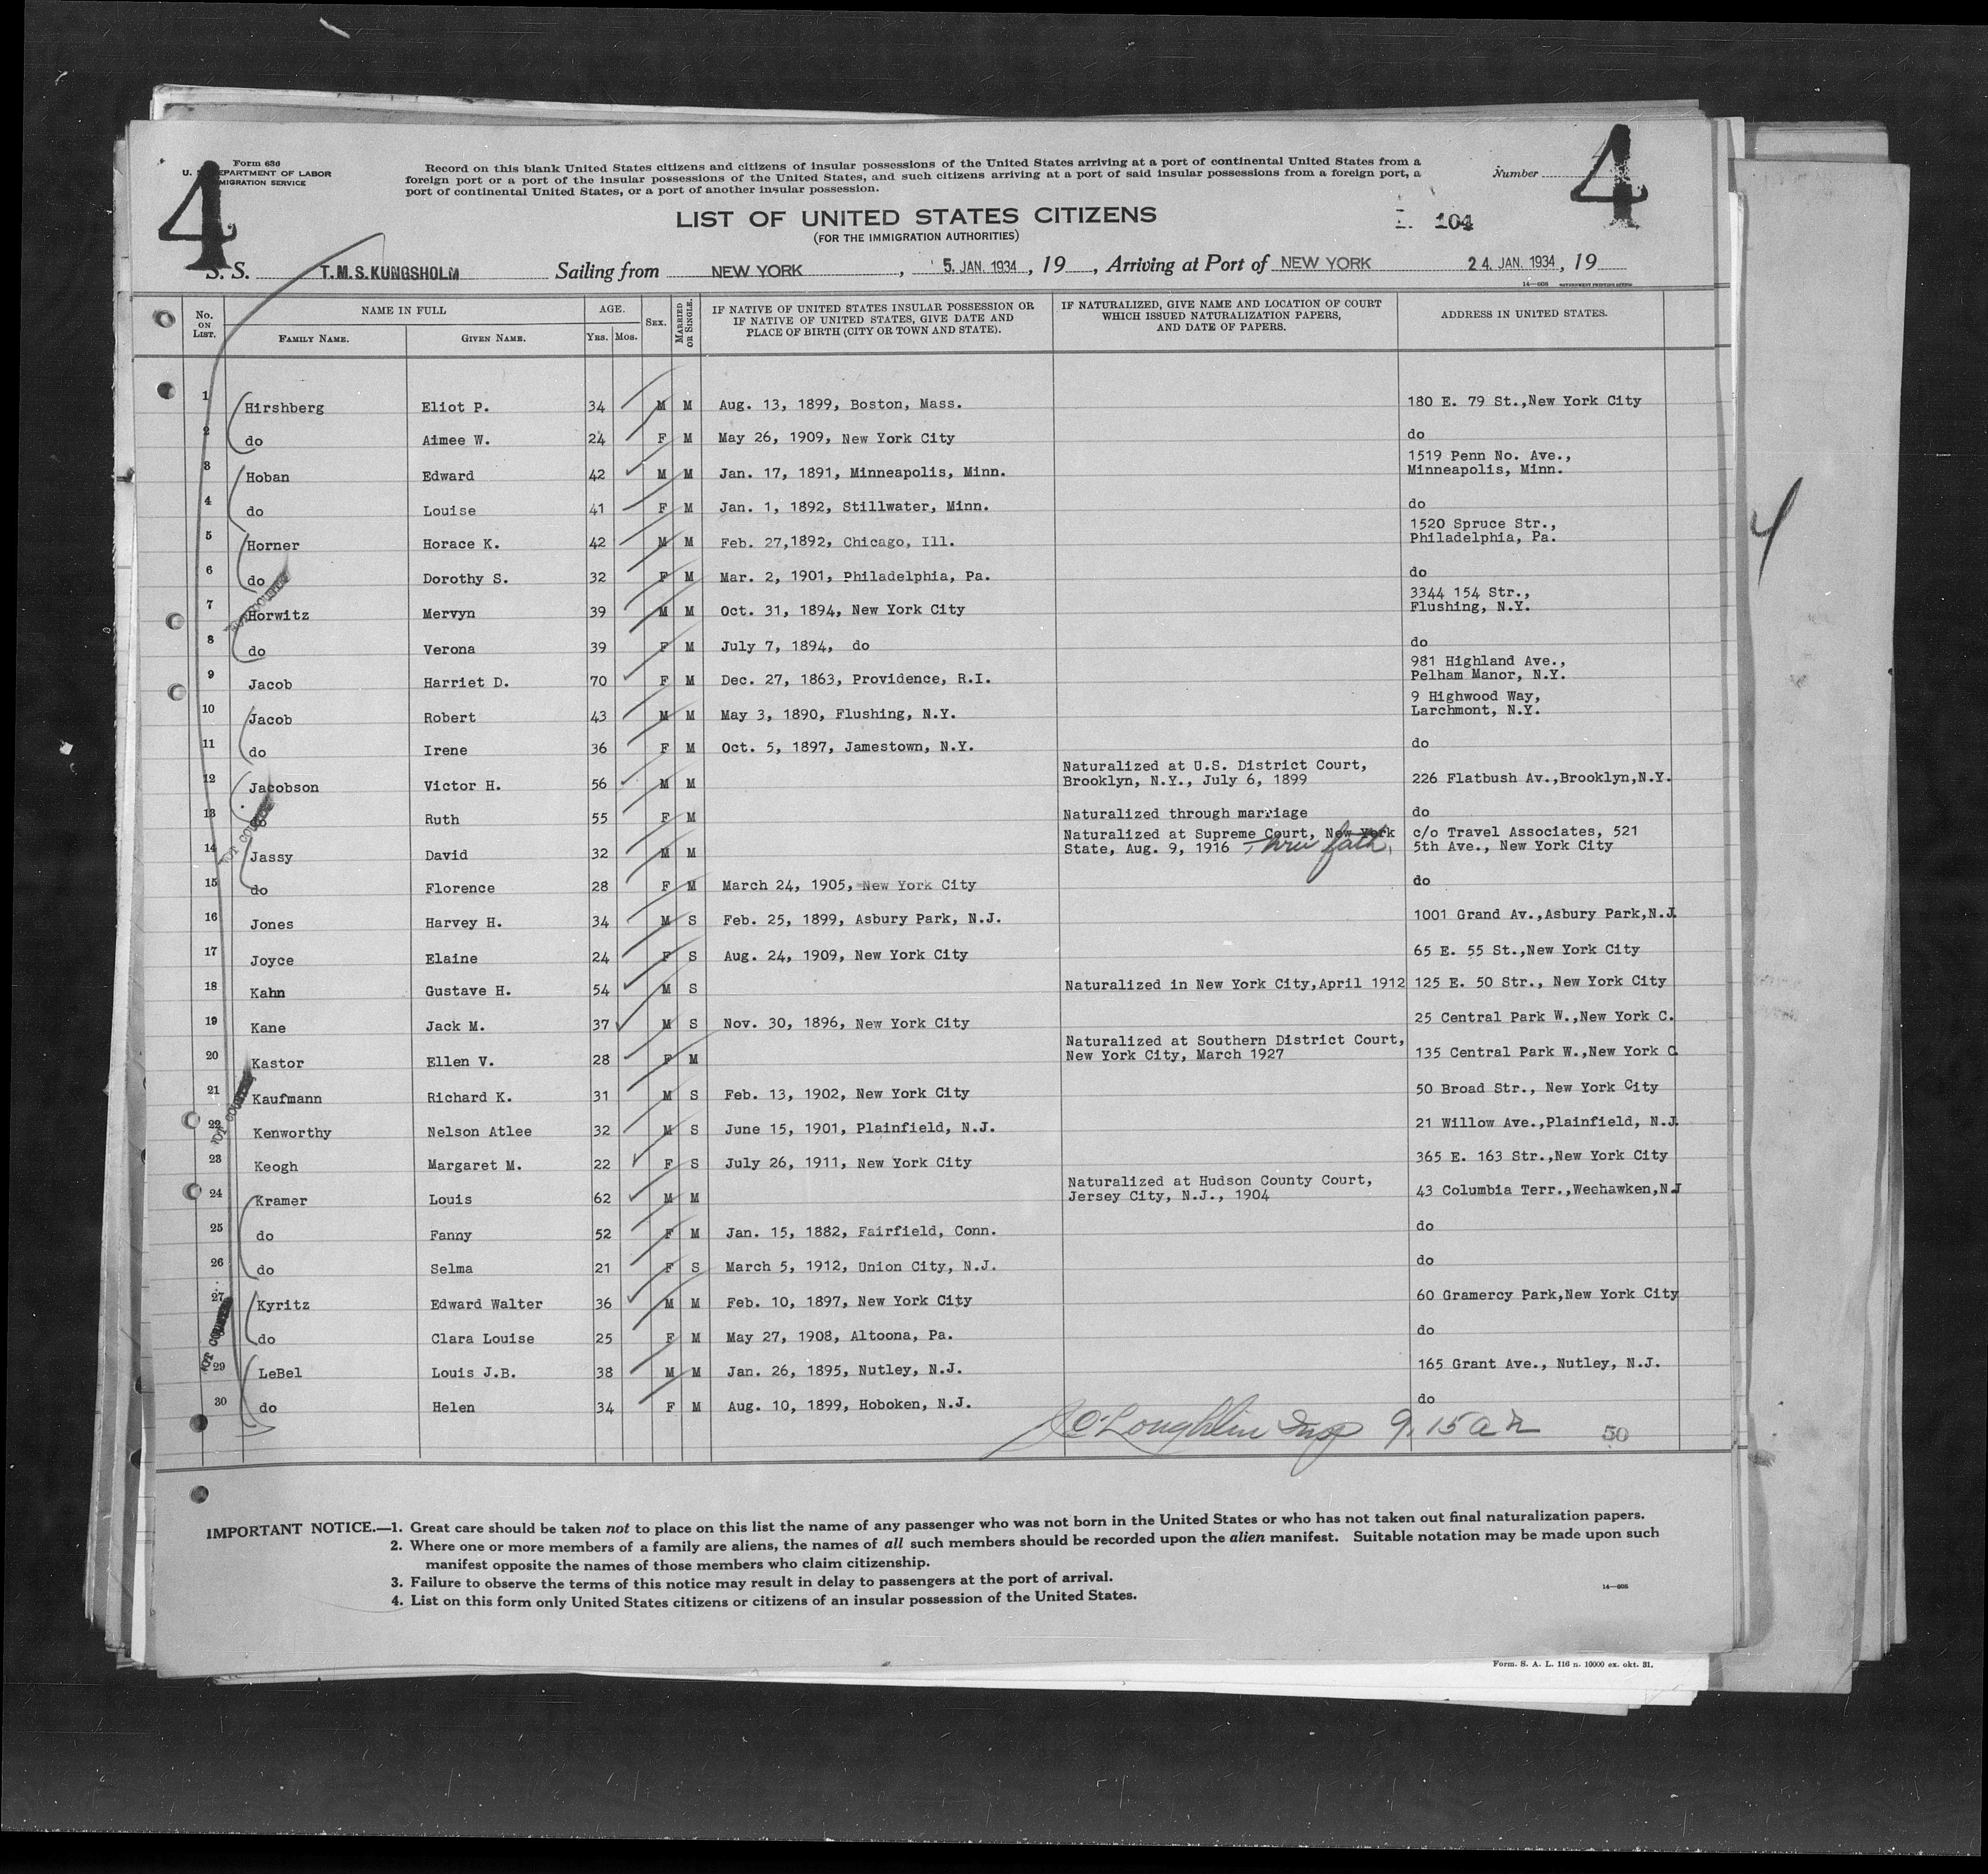 4
Form 630
U. S. DEPARTMENT OF LABOR
IMMIGRATION SERVICE
Record on this blank United States citizens and citizens of insular possessions of the United States arriving at a port of continental United States from a
foreign port or a port of the insular possessions of the United States, and such citizens arriving at a port of said insular possessions from a foreign port, a
port of continental United States, or a port of another insular possession.
Number
4
LIST OF UNITED STATES CITIZENS
(FOR THE IMMIGRATION AUTHORITIES)
104
S. S. T.M.S.KUNGSHOLM Sailing from NEW YORK, 5. JAN. 1934, 19 , Arriving at Port of NEW YORK 24. JAN. 1934, 19
14—608 GOVERNMENT PRINTING OFFICE
No. ON LIST. NAME IN FULL FAMILY NAME. GIVEN NAME. AGE. YRS. MOS. SEX. MARRIED OR SINGLE. IF NATIVE OF UNITED STATES INSULAR POSSESSION OR IF NATIVE OF UNITED STATES, GIVE DATE AND PLACE OF BIRTH (CITY OR TOWN AND STATE). IF NATURALIZED, GIVE NAME AND LOCATION OF COURT WHICH ISSUED NATURALIZATION PAPERS, AND DATE OF PAPERS. ADDRESS IN UNITED STATES.
1 Hirshberg Eliot P. 34 M M Aug. 13, 1899, Boston, Mass. 180 E. 79 St.,New York City
2 do Aimee W. 24 F M May 26, 1909, New York City do
3 Hoban Edward 42 M M Jan. 17, 1891, Minneapolis, Minn. 1519 Penn No. Ave., Minneapolis, Minn.
4 do Louise 41 F M Jan. 1, 1892, Stillwater, Minn. do
5 Horner Horace K. 42 M M Feb. 27,1892, Chicago, Ill. 1520 Spruce Str., Philadelphia, Pa.
6 do Dorothy S. 32 F M Mar. 2, 1901, Philadelphia, Pa. do
7 Horwitz Mervyn 39 M M Oct. 31, 1894, New York City 3344 154 Str., Flushing, N.Y.
8 do Verona 39 F M July 7, 1894, do do
9 Jacob Harriet D. 70 F M Dec. 27, 1863, Providence, R.I. 981 Highland Ave., Pelham Manor, N.Y.
10 Jacob Robert 43 M M May 3, 1890, Flushing, N.Y. 9 Highwood Way, Larchmont, N.Y.
11 do Irene 36 F M Oct. 5, 1897, Jamestown, N.Y. do
12 Jacobson Victor H. 56 M M Naturalized at U.S. District Court, Brooklyn, N.Y., July 6, 1899 226 Flatbush Av.,Brooklyn,N.Y.
13 do Ruth 55 F M Naturalized through marriage do
14 Jassy David 32 M M Naturalized at Supreme Court, New York State, Aug. 9, 1916 Thru fath. c/o Travel Associates, 521 5th Ave., New York City
15 do Florence 28 F M March 24, 1905, New York City do
16 Jones Harvey H. 34 M S Feb. 25, 1899, Asbury Park, N.J. 1001 Grand Av.,Asbury Park,N.J.
17 Joyce Elaine 24 F S Aug. 24, 1909, New York City 65 E. 55 St.,New York City
18 Kahn Gustave H. 54 M S Naturalized in New York City,April 1912 125 E. 50 Str., New York City
19 Kane Jack M. 37 M S Nov. 30, 1896, New York City 25 Central Park W.,New York C.
20 Kastor Ellen V. 28 F M Naturalized at Southern District Court, New York City, March 1927 135 Central Park W.,New York C.
21 Kaufmann Richard K. 31 M S Feb. 13, 1902, New York City 50 Broad Str., New York City
22 Kenworthy Nelson Atlee 32 M S June 15, 1901, Plainfield, N.J. 21 Willow Ave.,Plainfield, N.J.
23 Keogh Margaret M. 22 F S July 26, 1911, New York City 365 E. 163 Str.,New York City
24 Kramer Louis 62 M M Naturalized at Hudson County Court, Jersey City, N.J., 1904 43 Columbia Terr.,Weehawken,N.J
25 do Fanny 52 F M Jan. 15, 1882, Fairfield, Conn. do
26 do Selma 21 F S March 5, 1912, Union City, N.J. do
27 Kyritz Edward Walter 36 M M Feb. 10, 1897, New York City 60 Gramercy Park,New York City
do Clara Louise 25 F M May 27, 1908, Altoona, Pa. do
29 LeBel Louis J.B. 38 M M Jan. 26, 1895, Nutley, N.J. 165 Grant Ave., Nutley, N.J.
30 do Helen 34 F M Aug. 10, 1899, Hoboken, N.J. do
O'Loughlin Insp 9.15 a m 50
4
IMPORTANT NOTICE.—1. Great care should be taken not to place on this list the name of any passenger who was not born in the United States or who has not taken out final naturalization papers.
2. Where one or more members of a family are aliens, the names of all such members should be recorded upon the alien manifest. Suitable notation may be made upon such
manifest opposite the names of those members who claim citizenship.
3. Failure to observe the terms of this notice may result in delay to passengers at the port of arrival.
4. List on this form only United States citizens or citizens of an insular possession of the United States.
14—608
Form. S. A. L. 116 n. 10000 ex. okt. 31.